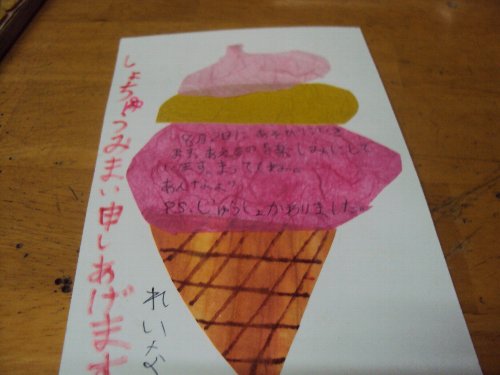 しょちゅうみまい申しあげます
8月2日に あそびにいき
ます。あえるのを楽しみにして
います。まっててね。
P.S. じゅうしょかわりました。
れいな